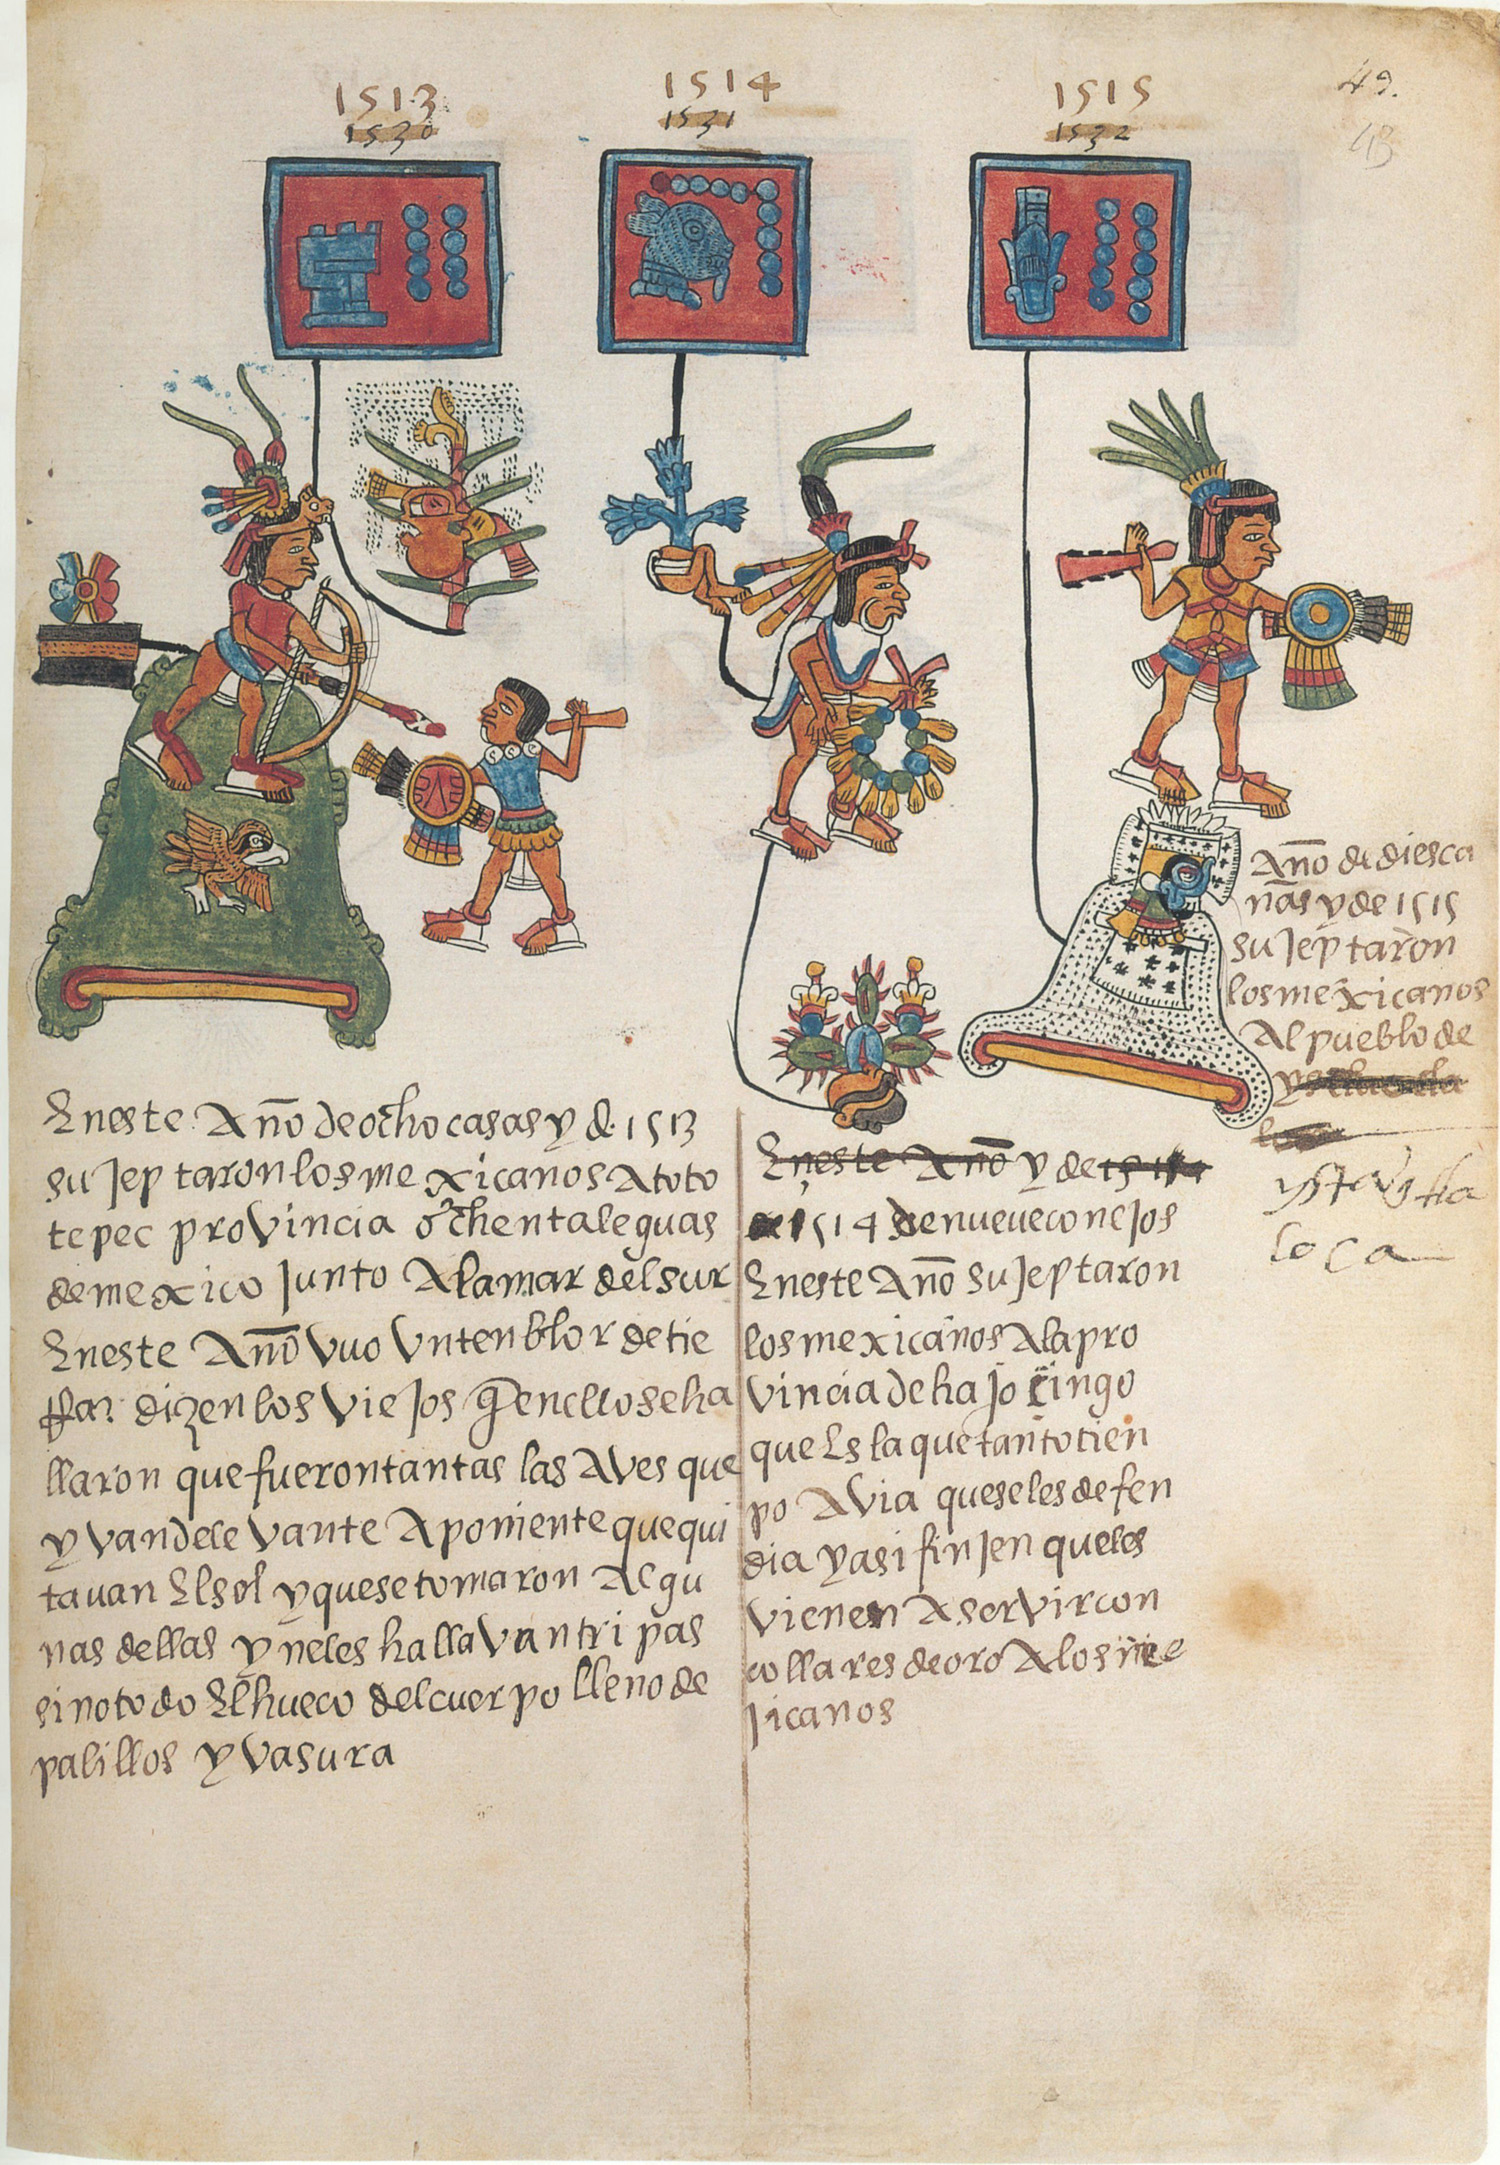 1513
1530
1514
1531
1515
1532
49.
43
Eneste Año de ocho casas y d. 1513
sujeptaron los mexicanos Atoto
tepec provincia ochenta leguas
de mexico junto Ala mar del sur
Eneste Año vuo vn tenblor de tie
rra. dizen los viejos q̄ en ellos se ha
llaron que fueron tantas las Aves que
y van de levante Aponiente que qui
tauan El sol y que se tomaron Algu
nas dellas y no les hallavan tripas
sino todo El hueco del cuerpo lleno de
palillos y vasura
Eneste Año y de
1514 de nueue conejos
Eneste Año sujeptaron
los mexicanos Ala pro
vincia de hajoçingo
que Es la que tanto tien
po Avia que se les defen
dia y asi finjen que les
vienen A servir con
collares de oro A los me
jicanos
Año de diesca
ñas y de 1515
sujeptaron
los mexicanos
Al pueblo de
ystaāstla
loca